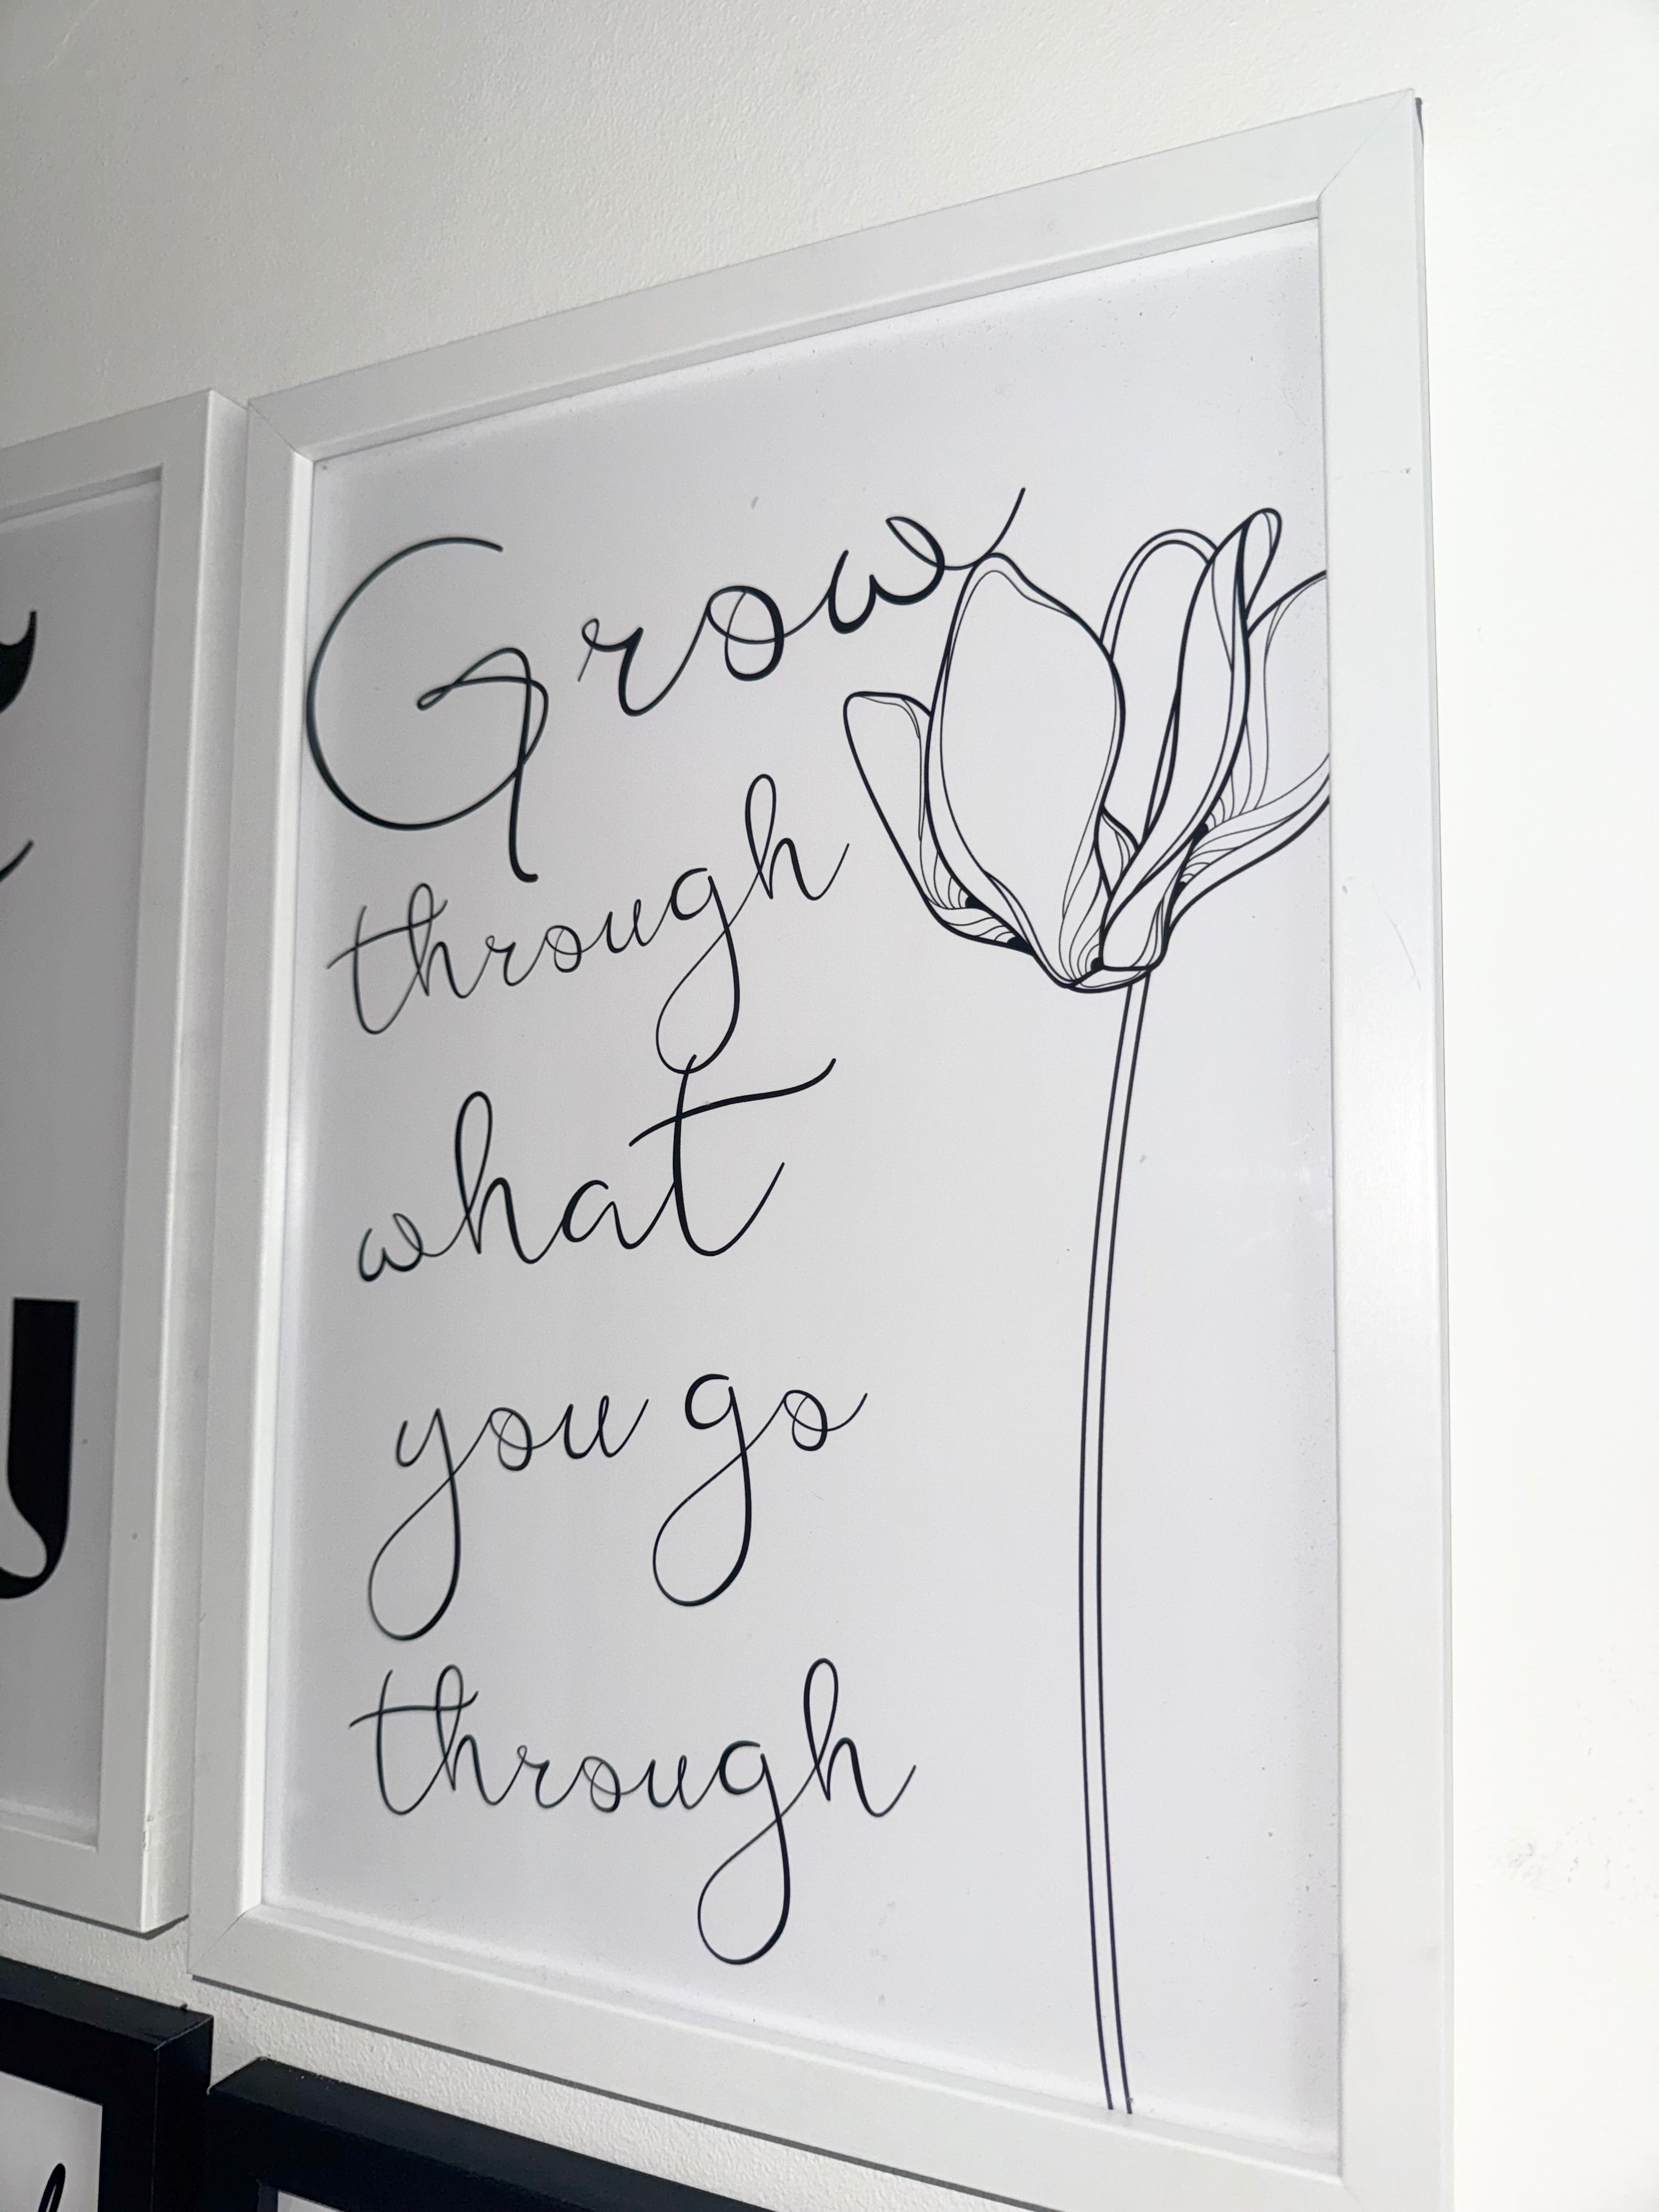 Grow
through
what
you go
through